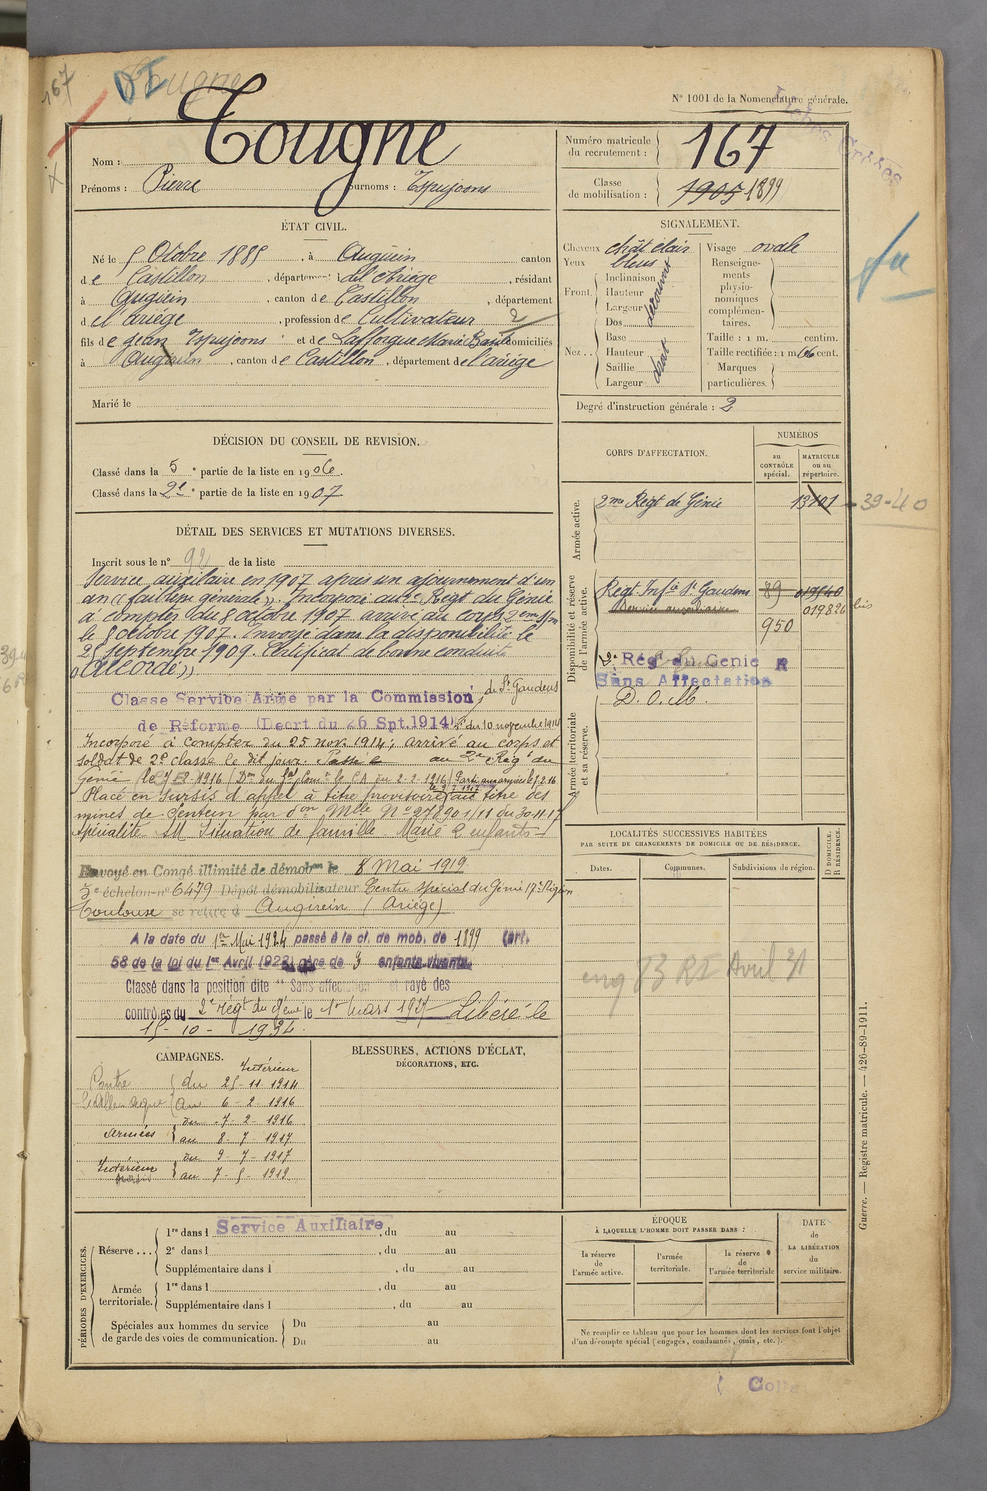 167
N° 1001 de la Nomenclature générale.
Nom : Tougne
Prénoms : Pierre Surnoms : Espujeons
Numéro matricule du recrutement : 167
Classe de mobilisation : 1905 1899
ÉTAT CIVIL.
Né le 5 Octobre 1885, à Augirein canton
de Castillon, département de l'Ariège, résidant
à Augirein, canton de Castillon, département
de l'Ariège, profession de Cultivateur
fils de Jean Espujeons et de Lafforgue Marie domiciliés
à Augirein, canton de Castillon, département de l'ariège
Marié le
SIGNALEMENT.
Cheveux chât clair
Yeux bleus
Front.
Inclinaison
Hauteur
Largeur
Dos
Nez ..
Base
Hauteur
Saillie
Largeur
Visage ovale
Renseignements physionomiques complémentaires.
Taille : 1 m. centim.
Taille rectifiée : 1 m 66 cent.
Marques particulières.
Degré d'instruction générale : 2
DÉCISION DU CONSEIL DE REVISION.
Classé dans la 5e partie de la liste en 1906.
Classé dans la 2e partie de la liste en 1907
DÉTAIL DES SERVICES ET MUTATIONS DIVERSES.
Inscrit sous le n° 92 de la liste
Service auxiliaire en 1907 après un ajournement d'un
an (faiblesse générale). Incorporé au 2e Régt du Génie
à compter du 8 octobre 1907 arrivé au corps
le 8 octobre 1907. Envoyé dans la disponibilité le
25 septembre 1909. Certificat de bonne conduite
"Accordé"
Classe Service Armé par la Commission de St Gaudens
de Réforme (Decrt du 26 Spt.1914) du 10 novembre 1914
Incorporé à compter du 25 nov. 1914, arrivé au corps et
soldat de 2e classe le dit jour. Passé au 2e Régt du
Génie le 7 1916
Placé en sursis d'appel à titre provisoire au titre des
mines de Sentein par don Mlle N° 27890 1/11 du 30-11-17
Spécialité SM Situation de famille Marié 2 enfants
Envoyé en Congé illimité de démobon le 8 Mai 1919
3e échelon-n° 6479 Dépôt démobilisateur Centre Spécial du Génie 17e Région
Toulouse se retire à Augirein (Ariège)
A la date du 1er Mai 1924 passé à la cl. de mob. de 1899 (art.
58 de la loi du 1er Avril 1923) père de 3 enfants vivants.
Classé dans la position dite "Sans affectation" et rayé des
contrôles du 2e Régt du Génie le 1er Mars 1927 Libéré le
15-10-1934.
CORPS D'AFFECTATION.
NUMÉROS
au CONTRÔLE spécial.
MATRICULE ou au répertoire.
Armée active.
2me Régt de Génie
39-40
Disponibilité et réserve de l'armée active.
Régt Infie St Gaudens 89 019540
Service auxiliaire 019826 bis
950
2e Rég du Genie R
Sans Affectation
D. O. M.
Armée territoriale et sa réserve.
LOCALITÉS SUCCESSIVES HABITÉES
PAR SUITE DE CHANGEMENTS DE DOMICILE OU DE RÉSIDENCE.
Dates.
Communes.
Subdivisions de région.
D DOMICILE.
R RÉSIDENCE.
Avril 31
CAMPAGNES.
Contre l'Allemagne
Intérieur
du 25-11-1914
au 6-2-1916
Armées
du 7-2-1916
au 8-7-1917
Intérieur
du 9-7-1917
au 7-5-1919
BLESSURES, ACTIONS D'ÉCLAT,
DÉCORATIONS, ETC.
PÉRIODES D'EXERCICES.
Réserve ...
1re dans l Service Auxiliaire, du au
2e dans l , du au
Supplémentaire dans l , du au
Armée territoriale.
1re dans l , du au
Supplémentaire dans l , du au
Spéciales aux hommes du service de garde des voies de communication.
Du au
Du au
ÉPOQUE
À LAQUELLE L'HOMME DOIT PASSER DANS :
la réserve de l'armée active.
l'armée territoriale.
la réserve de l'armée territoriale
DATE de LA LIBÉRATION du service militaire.
Ne remplir ce tableau que pour les hommes dont les services font l'objet
d'un décompte spécial (engagés, condamnés, omis, etc.).
Guerre. — Registre matricule. — 426-89-1911.